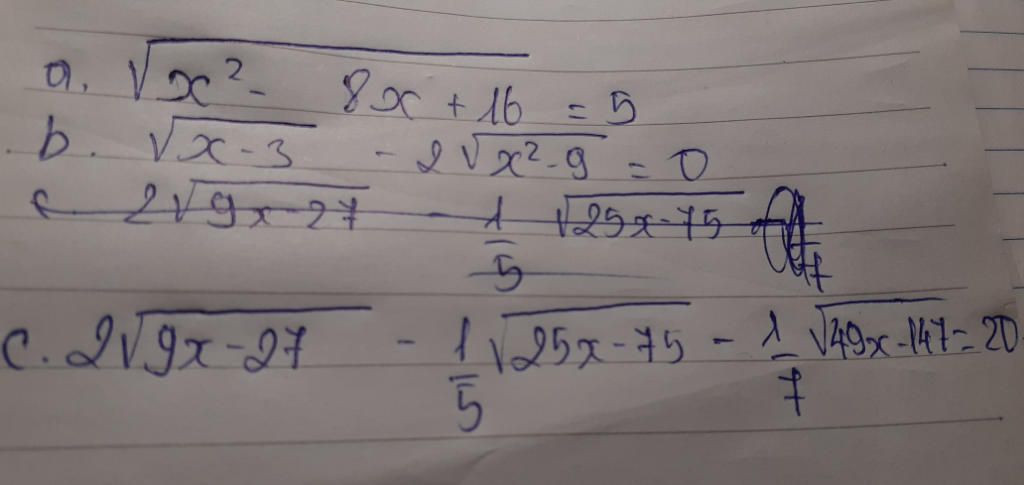 a. √(x² - 8x + 16) = 5
b. √(x - 3) - 2√(x² - 9) = 0
c 2√(9x - 27) - 1/5 √(25x - 75)
c. 2√(9x - 27) - 1/5 √(25x - 75) - 1/7 √(49x - 147) = 20